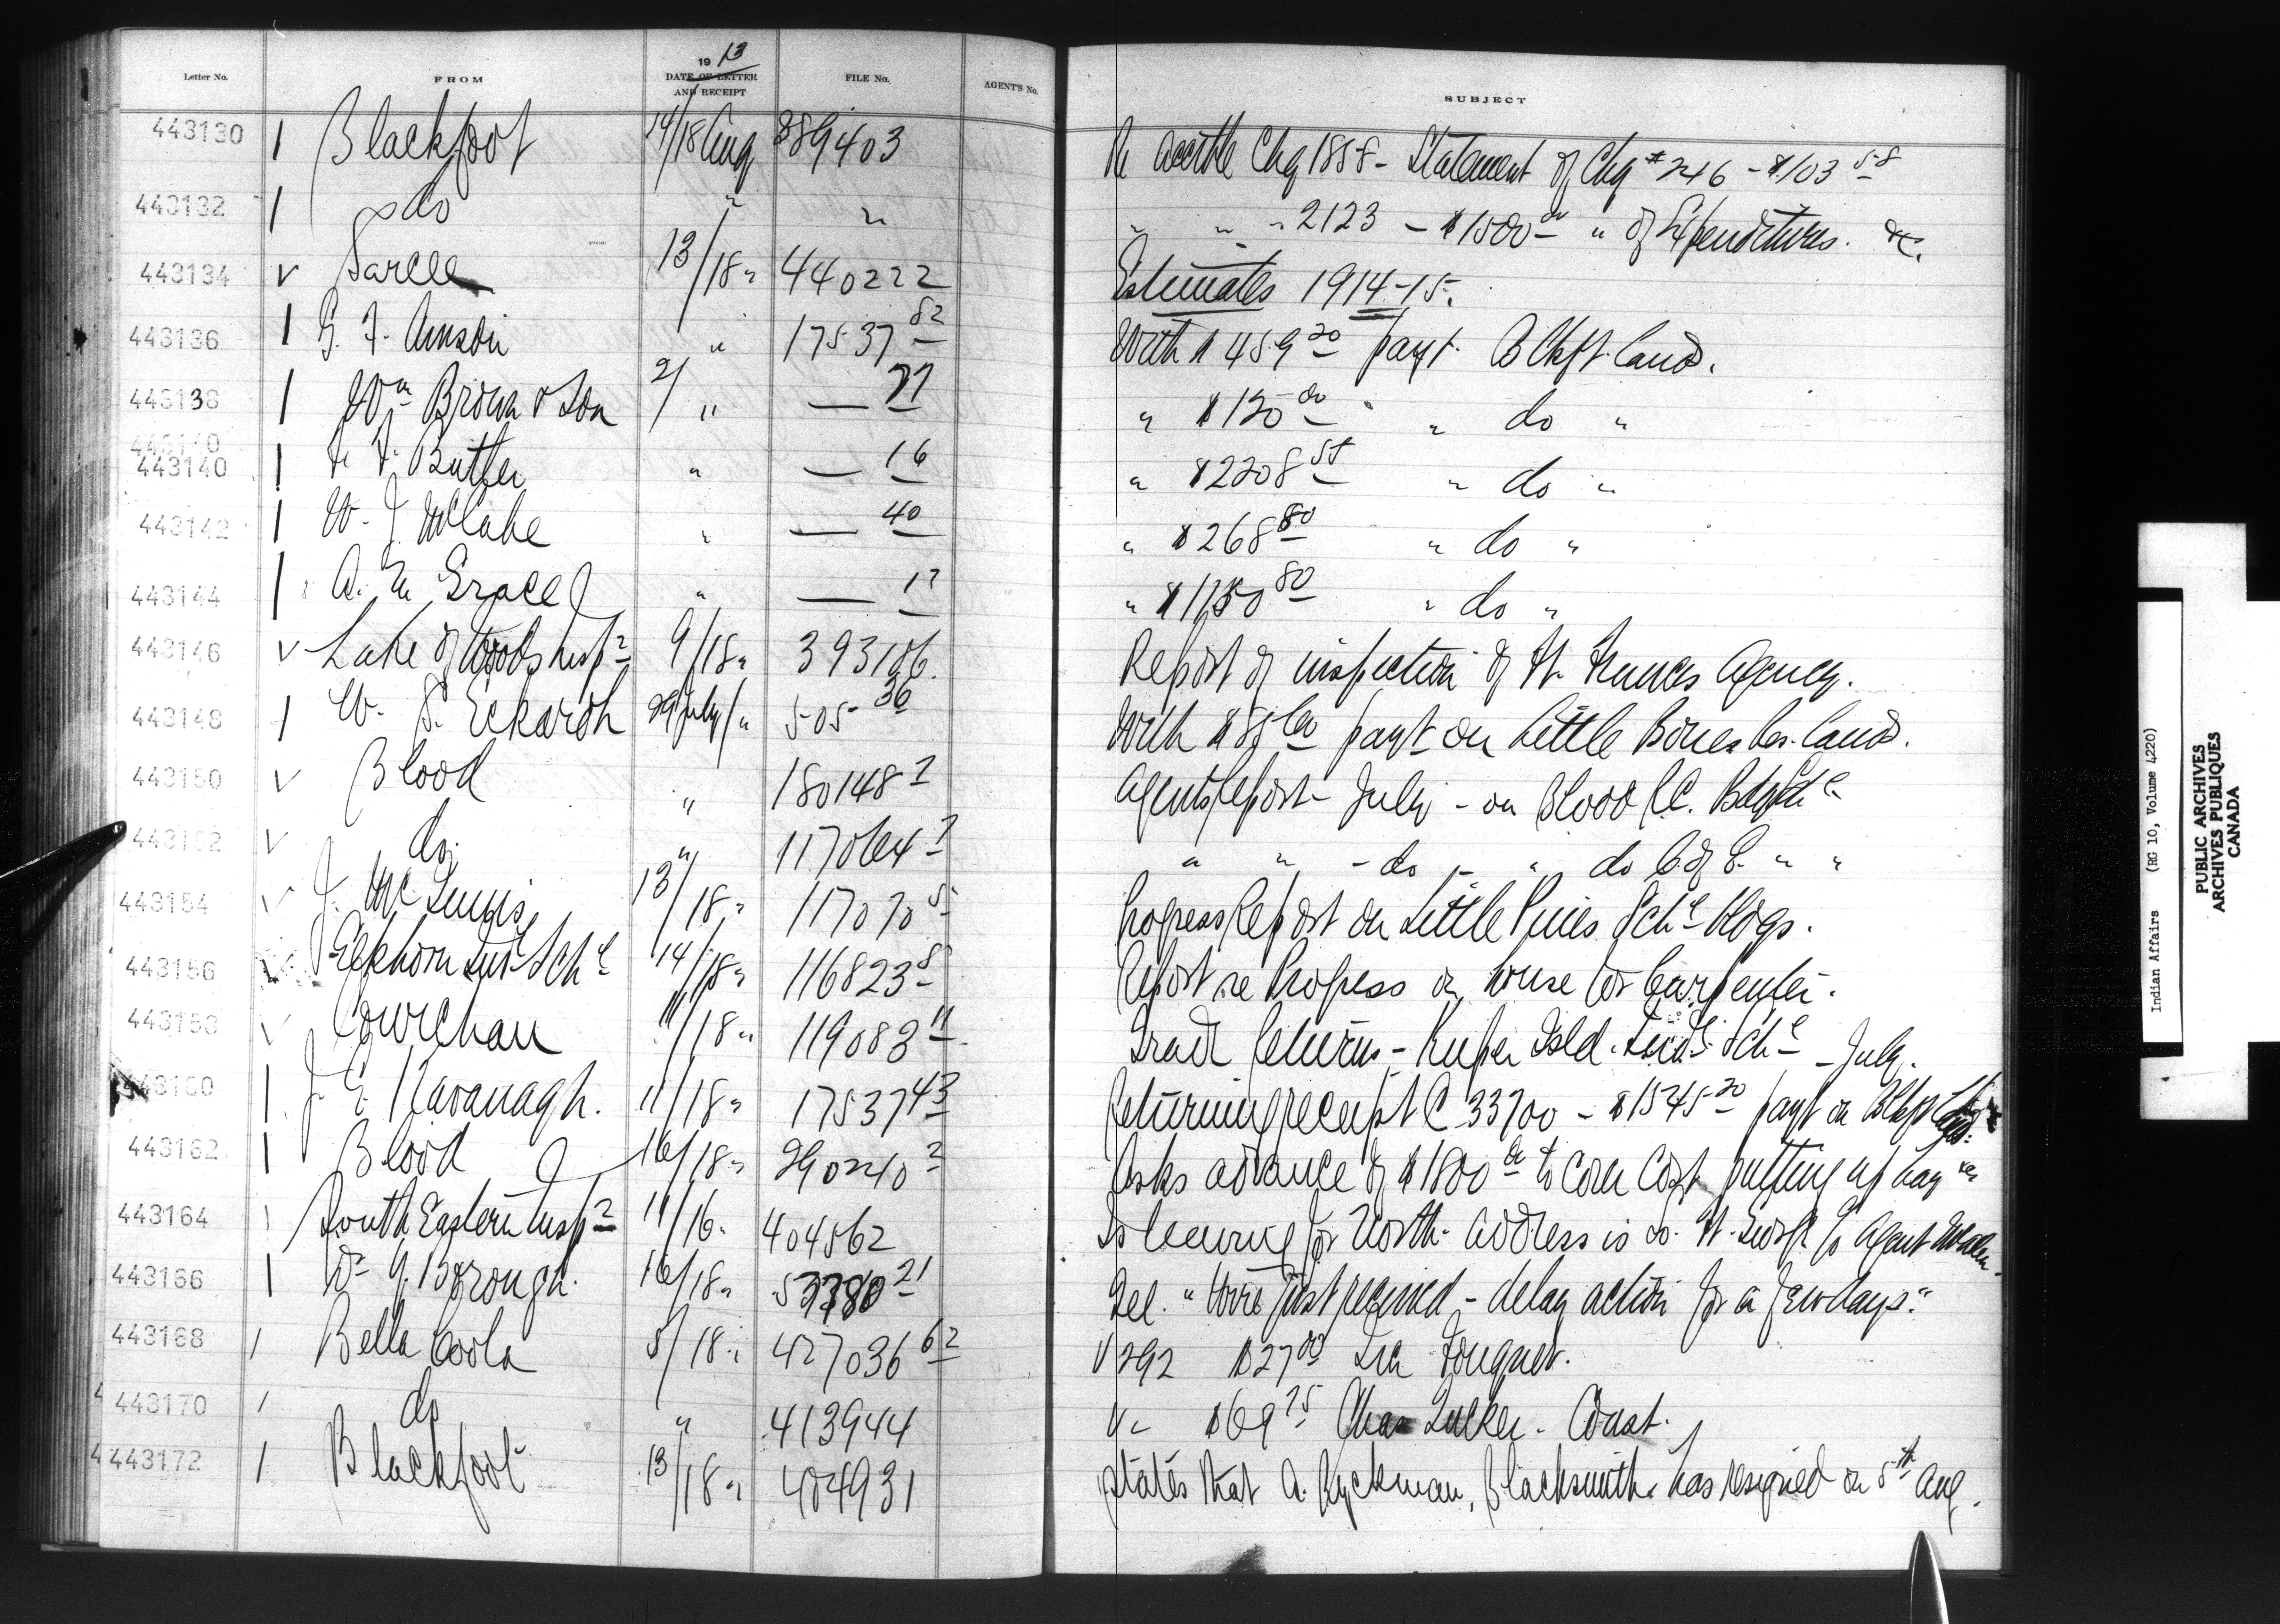 Letter No. FROM 1913 DATE OF LETTER AND RECEIPT FILE No. AGENT'S No. SUBJECT
443130 Blackfoot 14/18 Aug 389403 Re accble Chq 1858 - Statement of Chq # 246 - $103 58
443132 do " " " " " 2123 - $1500 00 " of Expenditures. &c.
443134 Sarcee 13/18 " 440222 Estimates 1914-15.
443136 G. F. " 17537 82 With $459 20 payt. Blkft land.
443138 Wm Brown & Son 2/ " — 77 " $120 00 " do "
443140
443140 Butler " — 16 " $2208 " do "
443142 W. J. McCabe " — 40 " $268 80 " do "
443144 A. Grace " — " 80 " do "
443146 Lake of Woods Insp 9/18 " 393106. Report of inspection of Ft. Frances Agency.
443148 W. S. Eckardt 29 July/ " 505 36 With payt on Little Bones Res. land.
443150 Blood " 180148 2 Agents Report - July - on Blood R.C. Bdg Schl
443152 do. " " " - do - " do C of E. " "
443154 J. Mc 13/18 " 117070 5 Progress Report on Little Pines Schl Bldgs.
443156 Elkhorn Indl Schl 14/18 " 116823 8 Report re Progress on house for Carpenter.
443158 Cowichan 11/18 " 119083 11 Grant Returns - Kuper Isld. Indl Schl - July.
443160 J. E. Kavanagh. 11/18 " 17537 43 Returning receipt C 33700 - $1545 20 payt on Blkft
443162 Blood 16/18 " 290240 2 Asks advance of $1800 00 to cover cost putting up hay
443164 South Eastern Insp 11/16 " 404562 Is leaving for North. Address is co. Agent
443166 Borough. 16/18 " 21 Tel. "Wire just received - delay action for a few days."
443168 Bella Coola 8/18 " 427036 62 V 292 $27 00
443170 do " 413944 V " $69 75 Chas
443172 Blackfoot 13/18 " 404931 States that A. Ryckman, Blacksmith has resigned on 5th Aug.
Indian Affairs (RG 10, Volume 4220)
PUBLIC ARCHIVES
ARCHIVES PUBLIQUES
CANADA